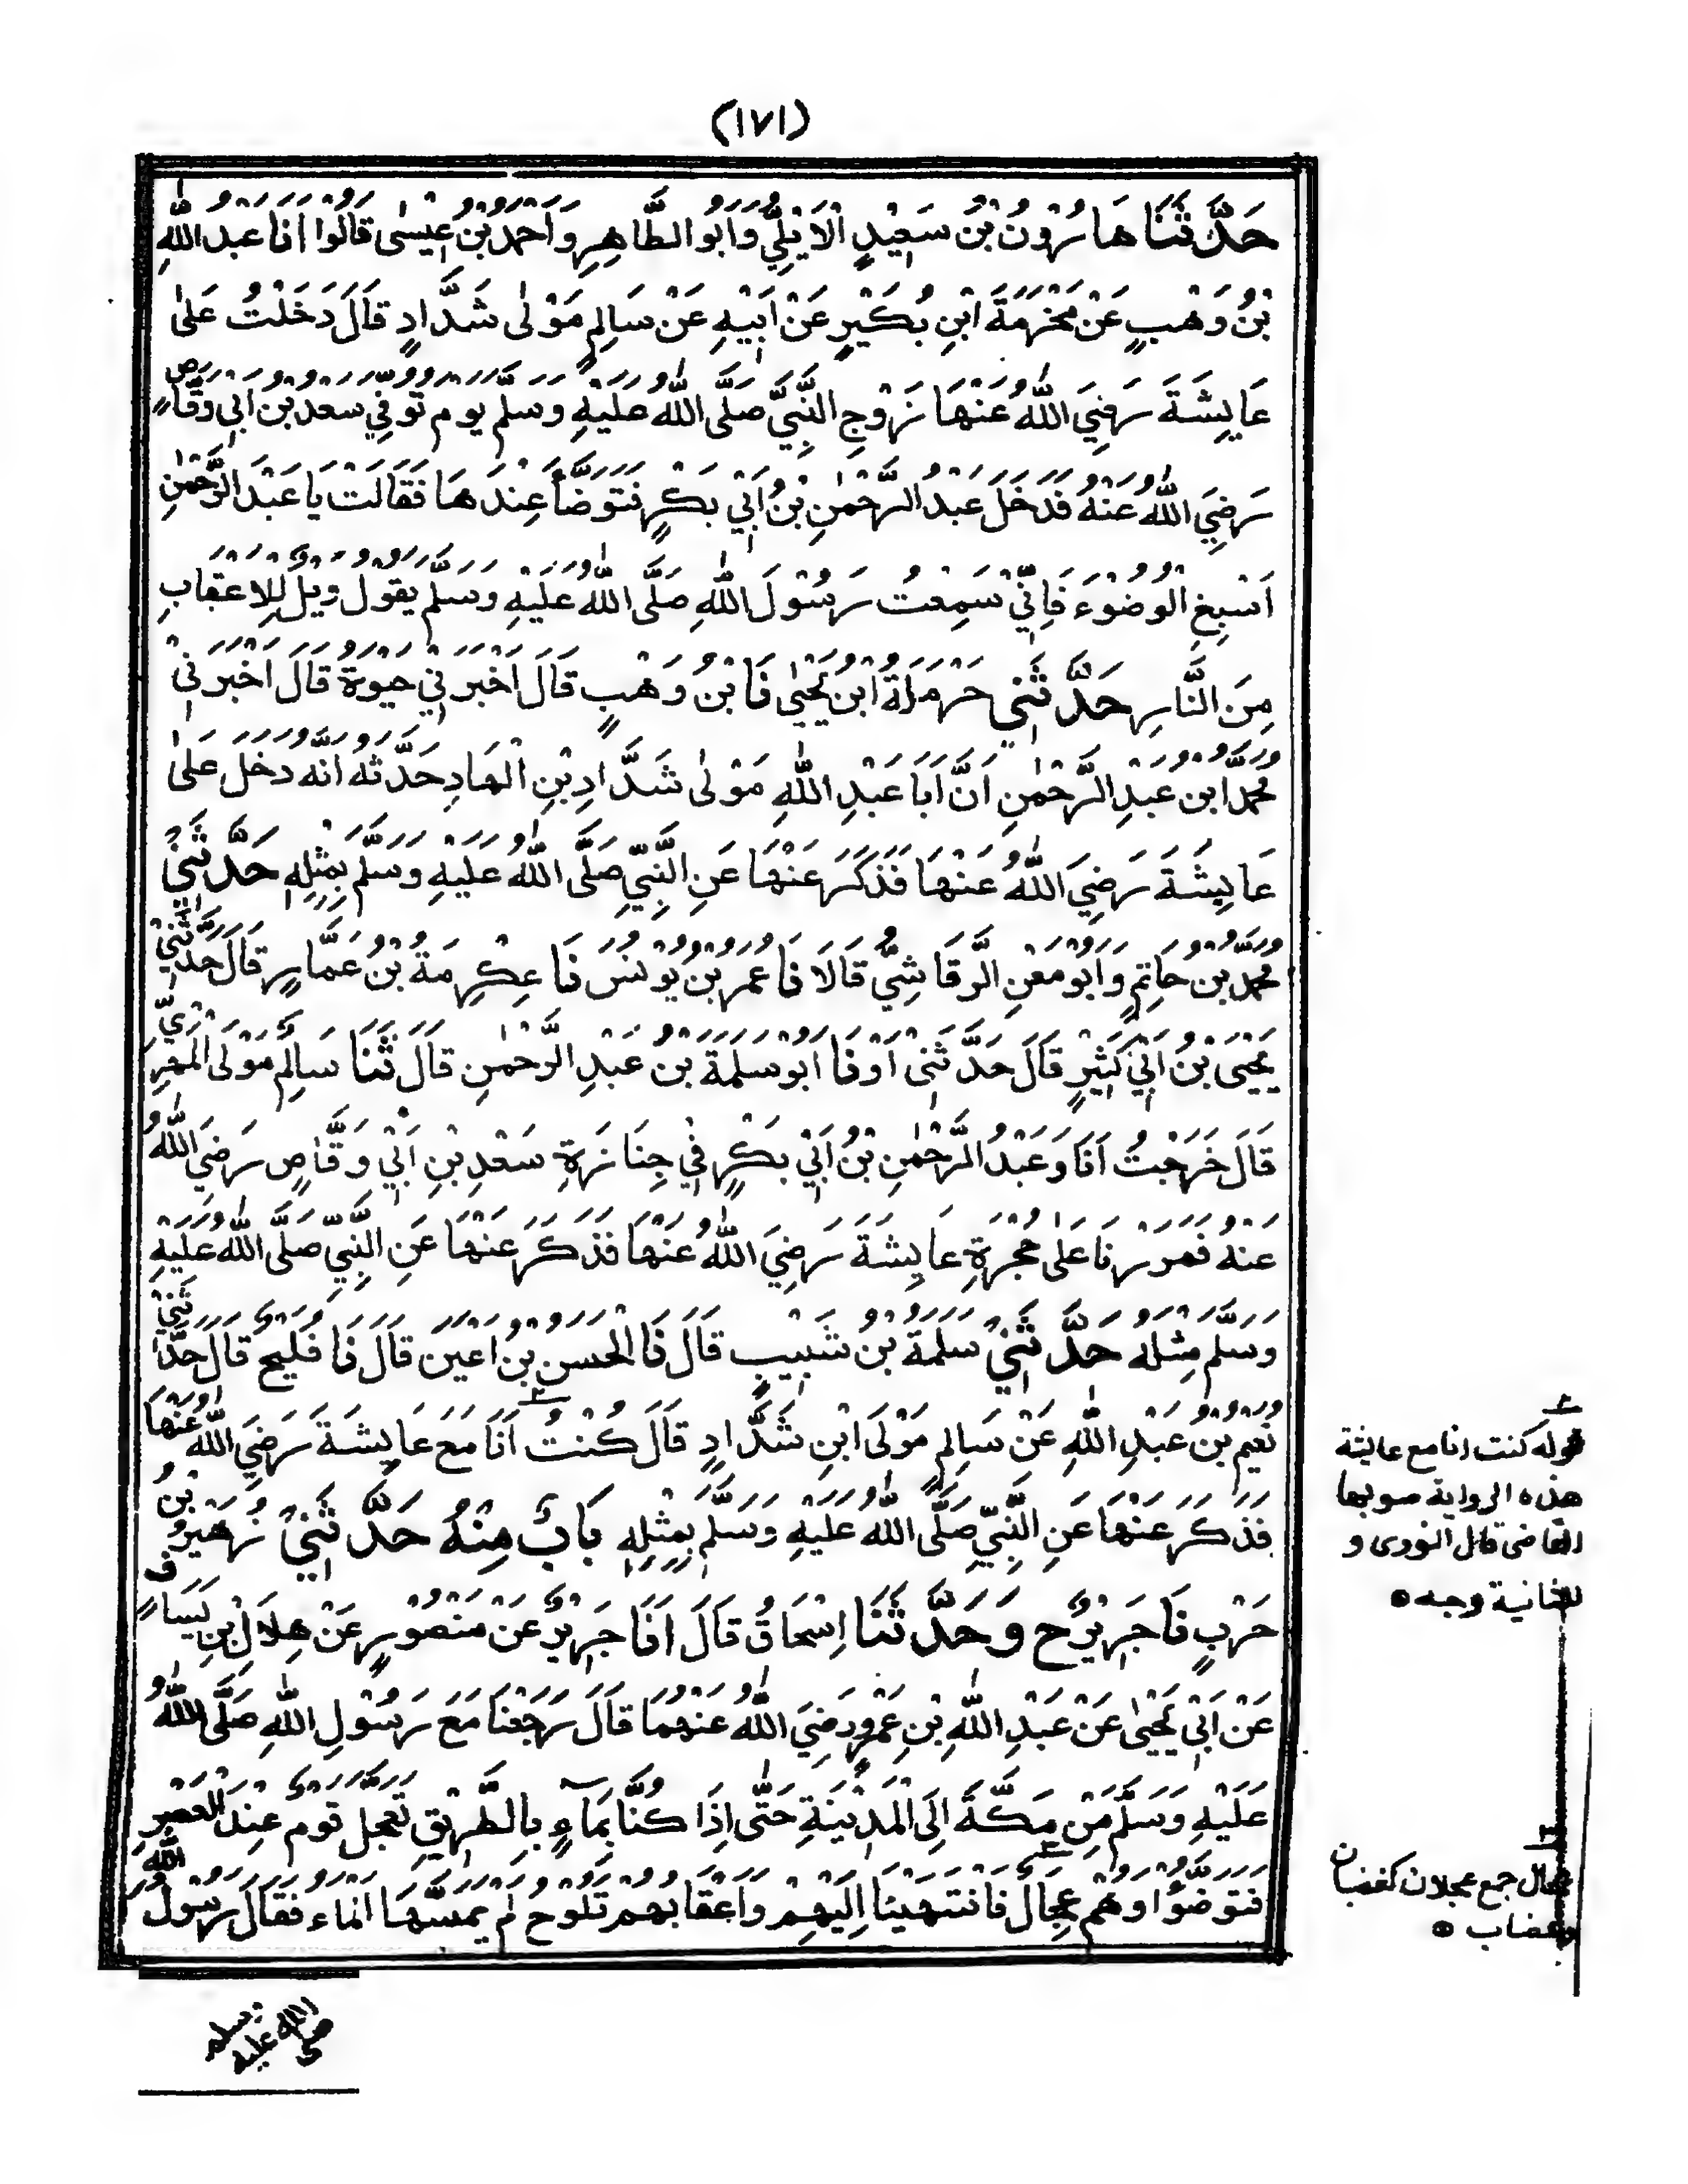 (١٧١)
حَدَّثَنَا هَارُوْنُ بْنُ سَعِيْدٍ الْاَيْلِيُّ وَاَبُو الطَّاهِرِ وَاَحْمَدُ بْنُ عِيْسٰى قَالُوْا اَنَا عَبْدُ اللّٰهِ
بْنُ وَهْبٍ عَنْ مَخْرَمَةَ ابْنِ بُكَيْرٍ عَنْ اَبِيْهِ عَنْ سَالِمٍ مَوْلٰى شَدَّادٍ قَالَ دَخَلْتُ عَلٰى
عَايِشَةَ رَضِيَ اللّٰهُ عَنْهَا زَوْجِ النَّبِيِّ صَلَّى اللّٰهُ عَلَيْهِ وَسَلَّمَ يَوْمَ تُوُفِّيَ سَعْدُ بْنُ اَبِيْ وَقَّاصٍ
رَضِيَ اللّٰهُ عَنْهُ فَدَخَلَ عَبْدُ الرَّحْمٰنِ بْنُ اَبِيْ بَكْرٍ فَتَوَضَّأَ عِنْدَهَا فَقَالَتْ يَا عَبْدَ الرَّحْمٰنِ
اَسْبِغِ الْوُضُوْءَ فَاِنِّيْ سَمِعْتُ رَسُوْلَ اللّٰهِ صَلَّى اللّٰهُ عَلَيْهِ وَسَلَّمَ يَقُوْلُ وَيْلٌ لِلْاَعْقَابِ
مِنَ النَّارِ حَدَّثَنِيْ حَرْمَلَةُ ابْنُ يَحْيٰى نَا ابْنُ وَهْبٍ قَالَ اَخْبَرَنِيْ حَيْوَةُ قَالَ اَخْبَرَنِيْ
مُحَمَّدُ ابْنُ عَبْدِ الرَّحْمٰنِ اَنَّ اَبَا عَبْدِ اللّٰهِ مَوْلٰى شَدَّادِ بْنِ الْهَادِ حَدَّثَهُ اَنَّهُ دَخَلَ عَلٰى
عَايِشَةَ رَضِيَ اللّٰهُ عَنْهَا فَذَكَرَ عَنْهَا عَنِ النَّبِيِّ صَلَّى اللّٰهُ عَلَيْهِ وَسَلَّمَ بِمِثْلِهِ حَدَّثَنِيْ
مُحَمَّدُ بْنُ حَاتِمٍ وَاَبُوْ مَعْنِ الرَّقَاشِيُّ قَالَا نَا عُمَرُ بْنُ يُوْنُسَ نَا عِكْرِمَةُ بْنُ عَمَّارٍ قَالَ حَدَّثَنِيْ
يَحْيَى بْنُ اَبِيْ كَثِيْرٍ قَالَ حَدَّثَنِيْ اَوْ نَا اَبُوْ سَلَمَةَ بْنُ عَبْدِ الرَّحْمٰنِ قَالَ ثَنَا سَالِمٌ مَوْلَى الْمَهْرِيِّ
قَالَ خَرَجْتُ اَنَا وَعَبْدُ الرَّحْمٰنِ بْنُ اَبِيْ بَكْرٍ فِيْ جِنَازَةِ سَعْدِ بْنِ اَبِيْ وَقَّاصٍ رَضِيَ اللّٰهُ
عَنْهُ فَمَرَرْنَا عَلٰى حُجْرَةِ عَايِشَةَ رَضِيَ اللّٰهُ عَنْهَا فَذَكَرَ عَنْهَا عَنِ النَّبِيِّ صَلَّى اللّٰهُ عَلَيْهِ
وَسَلَّمَ مِثْلَهُ حَدَّثَنِيْ سَلَمَةُ بْنُ شَبِيْبٍ قَالَ نَا الْحَسَنُ بْنُ اَعْيَنَ قَالَ نَا فُلَيْحٌ قَالَ حَدَّثَنِيْ
نُعَيْمُ بْنُ عَبْدِ اللّٰهِ عَنْ سَالِمٍ مَوْلَى ابْنِ شَدَّادٍ قَالَ كُنْتُ اَنَا مَعَ عَايِشَةَ رَضِيَ اللّٰهُ عَنْهَا
فَذَكَرَ عَنْهَا عَنِ النَّبِيِّ صَلَّى اللّٰهُ عَلَيْهِ وَسَلَّمَ بِمِثْلِهِ بَابٌ مِنْهُ حَدَّثَنِيْ زُهَيْرُ بْنُ
حَرْبٍ نَا جَرِيْرٌ ح وَحَدَّثَنَا اِسْحَاقُ قَالَ اَنَا جَرِيْرٌ عَنْ مَنْصُوْرٍ عَنْ هِلَالِ بْنِ يَسَافٍ
عَنْ اَبِيْ يَحْيٰى عَنْ عَبْدِ اللّٰهِ بْنِ عَمْرٍو رَضِيَ اللّٰهُ عَنْهُمَا قَالَ رَجَعْنَا مَعَ رَسُوْلِ اللّٰهِ صَلَّى اللّٰهُ
عَلَيْهِ وَسَلَّمَ مِنْ مَكَّةَ اِلَى الْمَدِيْنَةِ حَتّٰى اِذَا كُنَّا بِمَآءٍ بِالطَّرِيْقِ تَعَجَّلَ قَوْمٌ عِنْدَ الْعَصْرِ
فَتَوَضَّؤُا وَهُمْ عِجَالٌ فَانْتَهَيْنَا اِلَيْهِمْ وَاَعْقَابُهُمْ تَلُوْحُ لَمْ يَمَسَّهَا الْمَاءُ فَقَالَ رَسُوْلُ اللّٰهِ
صلى الله عليه وسلم
قوله كنت انا مع عائشة
هذه الرواية صوبها
القاضى قال النووى و
للثانية وجه
عجال جمع عجلان كغضبان
وغضاب